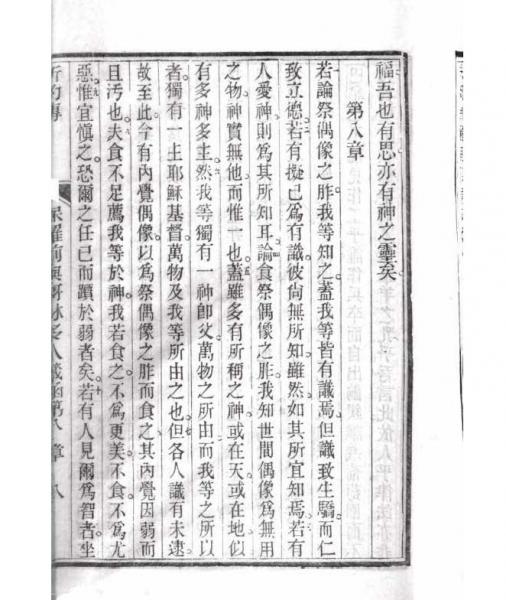 福吾也有思亦有神之靈矣
第八章
若論祭偶像之胙我等知之蓋我等皆有識焉但識致生驕而仁
致立德若有擬已為有識彼尚無所知雖然如其所宜知焉若有
人愛神則為其所知耳論食祭偶像之胙我知世間偶像為無用
之物神實無他而惟一也蓋雖多有所稱之神或在天或在地似
有多神多主然我等獨有一神即父萬物之所由而我等之所以
者獨有一主耶穌基督萬物及我等所由之也但各人識有未逮
故至此今有內覺偶像以為祭偶像之胙而食之其內覺因弱而
且污也夫食不足薦我等於神我若食之不為更美不食不為尤
惡惟宜慎之恐爾之任已而躓於弱者矣若有人見爾為智者坐
章 八